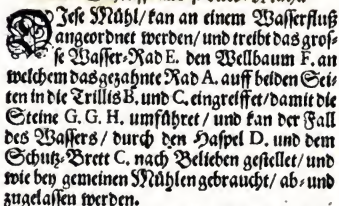 DIese Mühl/ kan an einem Wasserfluß
angeordnet werden/ und treibt das gros-
se Wasser-Rad E. den Wellbaum F. an
welchem das gezahnte Rad A. auff beiden Sei-
ten in die Trillis B. und C. eingreiffet/ damit die
Steine G. G. H. umführet/ und kan der Fall
des Wassers/ durch den Haspel D. und dem
Schutz-Brett C. nach Belieben gestellet/ und
wie bey gemeinen Mühlen gebraucht/ ab- und
zugelassen werden.